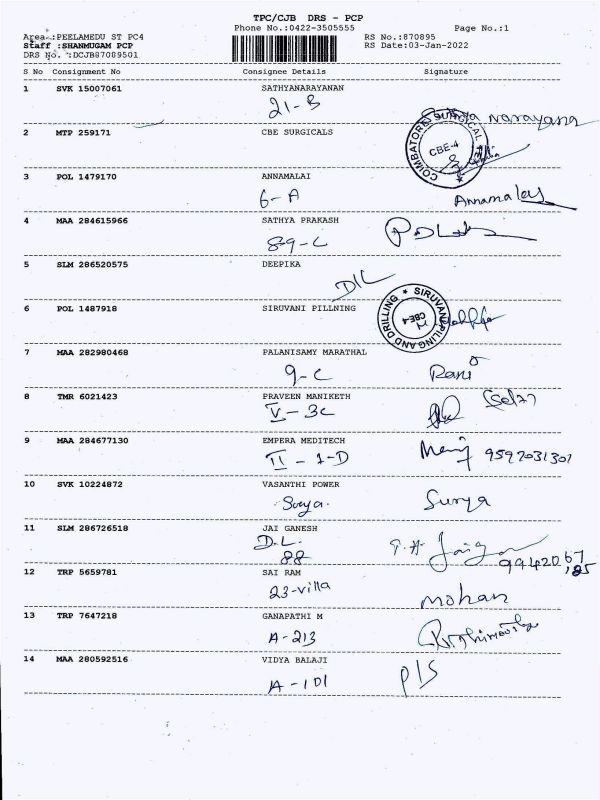 TPC/CJB DRS - PCP
Phone No.:0422-3505555 Page No.:1
Area :PEELAMEDU ST PC4 RS No.:870895
Staff :SHANMUGAM PCP RS Date:03-Jan-2022
DRS No. :DCJB87089501
S No Consignment No Consignee Details Signature
1 SVK 15007061 SATHYANARAYANAN
21-B narayana
2 MTP 259171 CBE SURGICALS
COIMBATORE SURGICAL
CBE-4
3 POL 1479170 ANNAMALAI
6-A Annamalai
4 MAA 284615966 SATHYA PRAKASH
89-C
5 SLM 286520575 DEEPIKA
D/L
6 POL 1487918 SIRUVANI PILLNING
SIRUVANI PILING AND DRILLING
CBE-4
7 MAA 282980468 PALANISAMY MARATHAL
9-C Rani
8 TMR 6021423 PRAVEEN MANIKETH
V-3C
9 MAA 284677130 EMPERA MEDITECH
II-1-D 9597031301
10 SVK 10224872 VASANTHI POWER
Surya. Surya
11 SLM 286726518 JAI GANESH
D.L.
88
12 TRP 5659781 SAI RAM
23-villa mohan
13 TRP 7647218 GANAPATHI M
A-213
14 MAA 280592516 VIDYA BALAJI
A-101 P/S